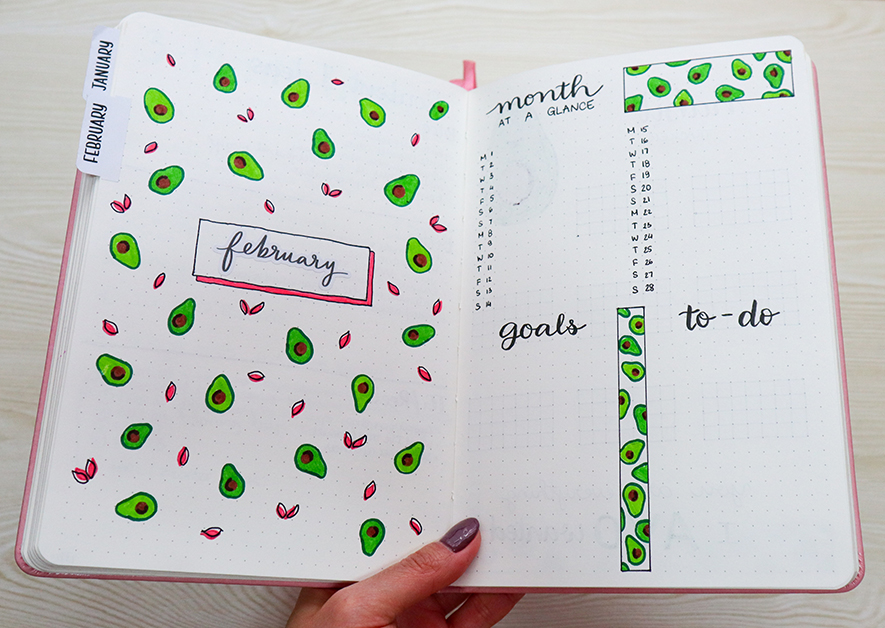 JANUARY
FEBRUARY
february
month
AT A GLANCE
M 1
T 2
W 3
T 4
F 5
S 6
S 7
M 8
T 9
W 10
T 11
F 12
S 13
S 14
M 15
T 16
W 17
T 18
F 19
S 20
S 21
M 22
T 23
W 24
T 25
F 26
S 27
S 28
goals
to-do